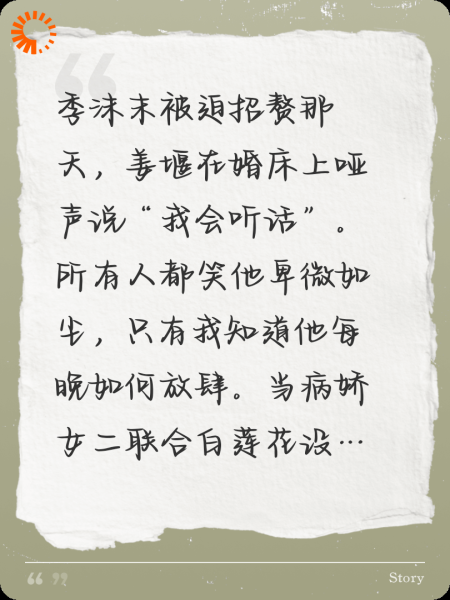 季沫末被迫招赘那
天，姜堰在婚床上哑
声说“我会听话”。
所有人都笑他卑微如
尘，只有我知道他每
晚如何放肆。当病娇
女二联合白莲花设…
Story